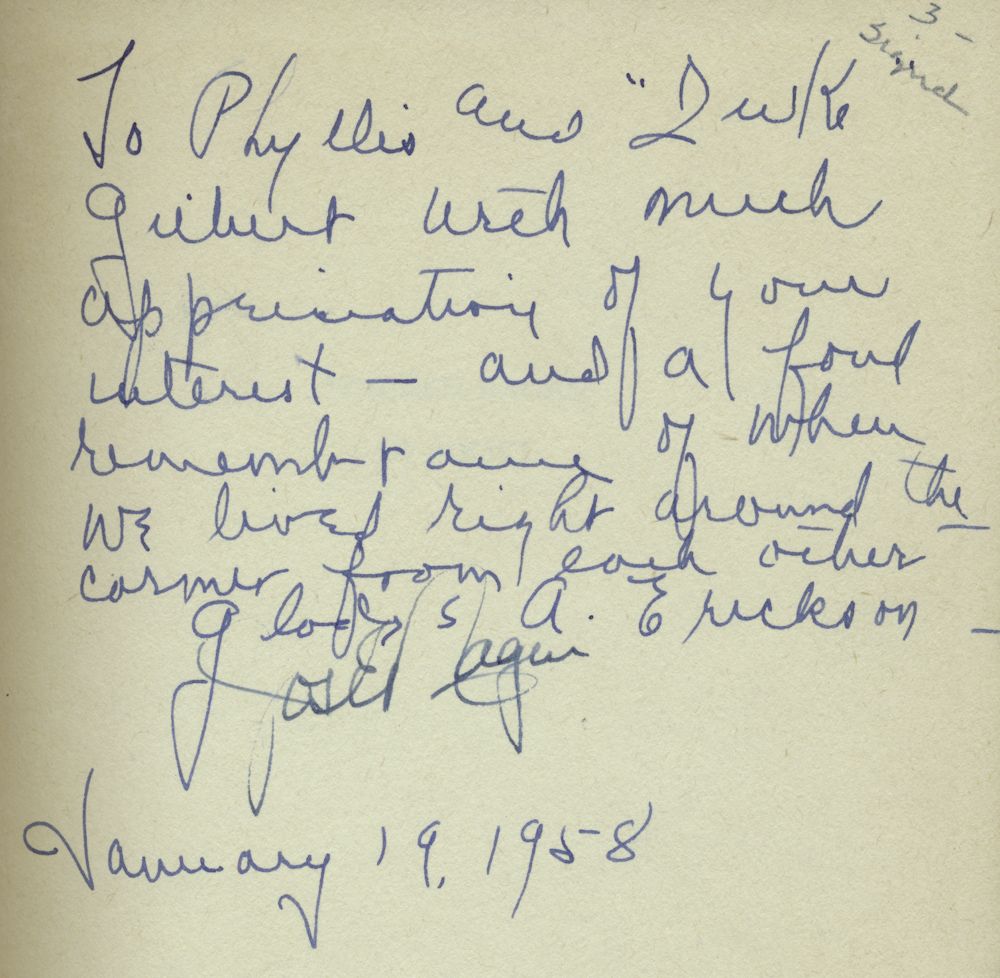 3 -
Signed
To Phyllis and "Duke
Gilbert with much
appreciation of your
interest - and of a fond
remembrance of when
we lived right around the
corner from each other
Gladys A. Erickson -
January 19, 1958